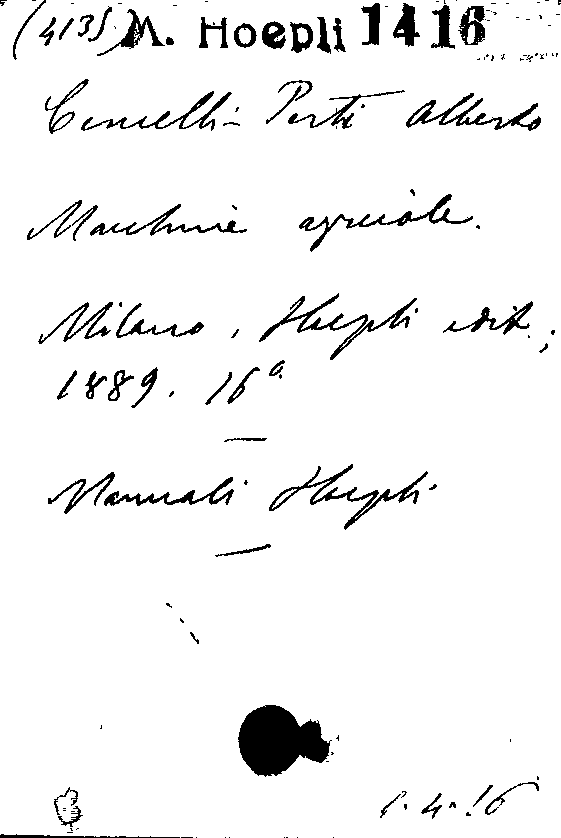 (4135) M. Hoepli 1416
Cencelli-Perti Alberto
Macchine agricole.
Milano, Hoepli edit.;
1889. 16°
Manuali Hoepli